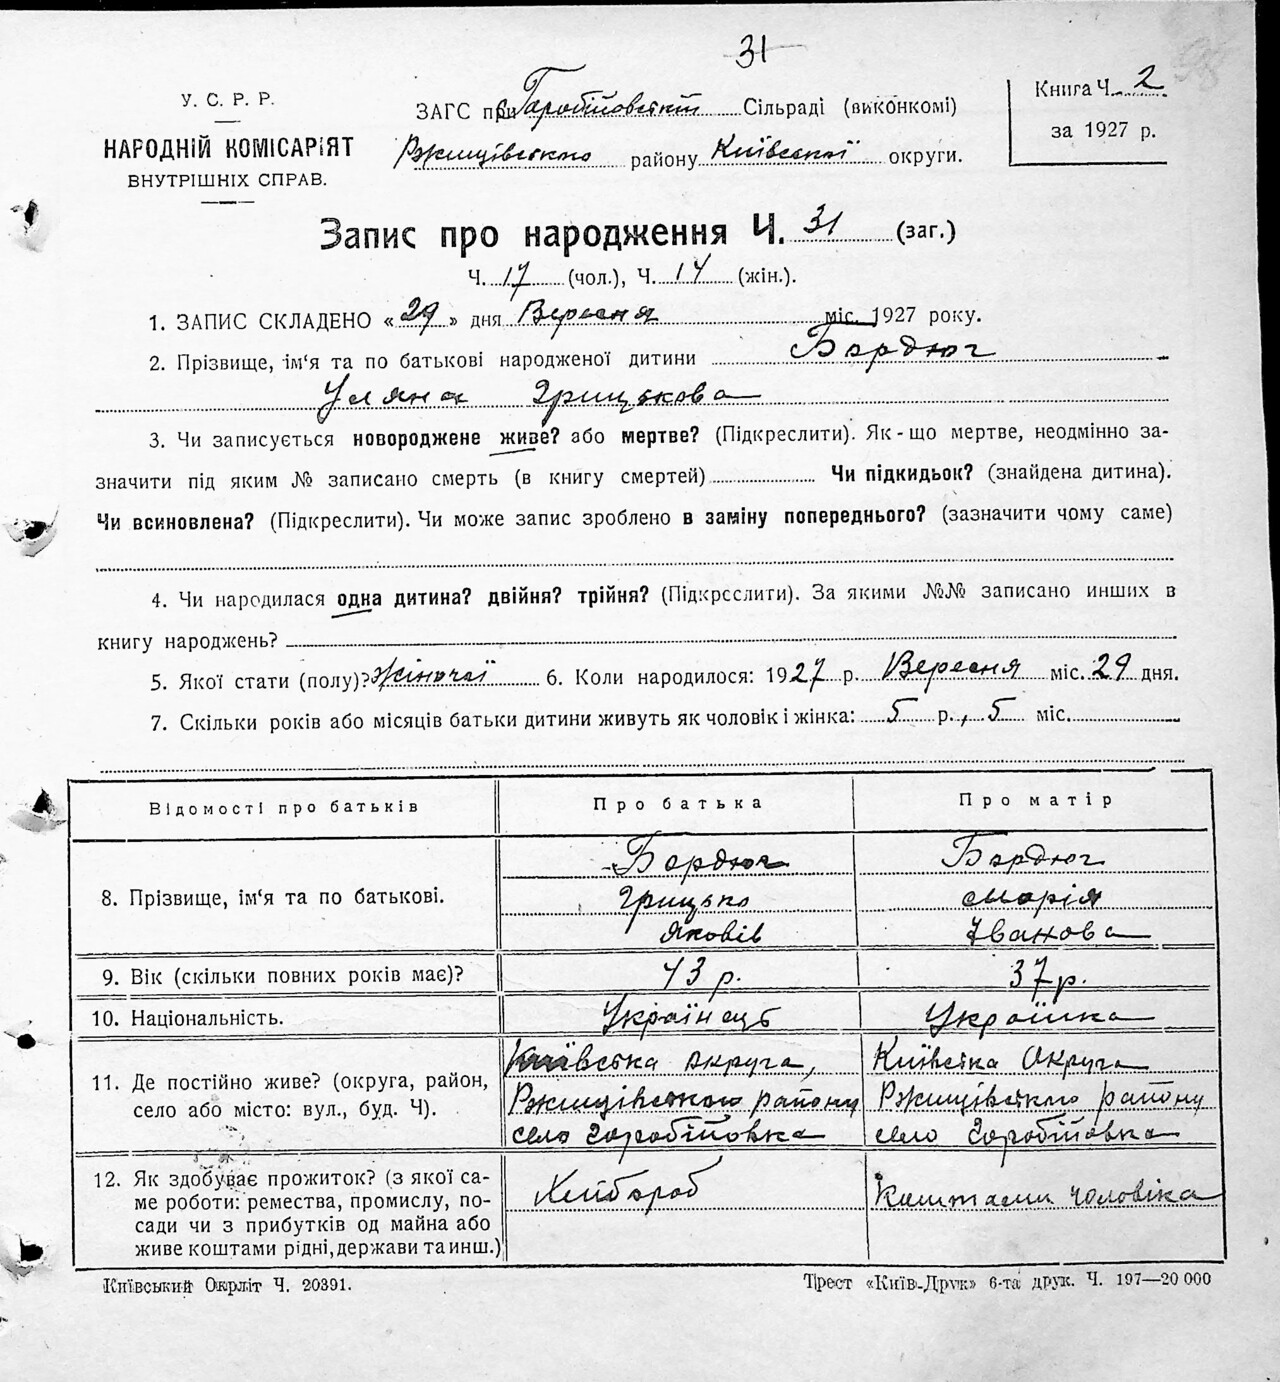 31
У. С. Р. Р.
НАРОДНІЙ КОМІСАРІЯТ
ВНУТРІШНІХ СПРАВ.
ЗАГС при Горобійовській Сільраді (виконкомі)
Ржищівського району Київської округи.
Книга Ч. 2
за 1927 р.
Запис про народження Ч. 31 (заг.)
Ч. 17 (чол.), Ч. 14 (жін.).
1. ЗАПИС СКЛАДЕНО «29» дня Вересня міс. 1927 року.
2. Прізвище, ім‘я та по батькові народженої дитини Бардюг
Уляна Грицькова
3. Чи записується новороджене живе? або мертве? (Підкреслити). Як-що мертве, неодмінно за-
значити під яким № записано смерть (в книгу смертей) Чи підкидьок? (знайдена дитина).
Чи всиновлена? (Підкреслити). Чи може запис зроблено в заміну попереднього? (зазначити чому саме)
4. Чи народилася одна дитина? двійня? трійня? (Підкреслити). За якими №№ записано инших в
книгу народжень?
5. Якої стати (полу)? Жіночої 6. Коли народилося: 1927 р. Вересня міс. 29 дня.
7. Скільки років або місяців батьки дитини живуть як чоловік і жінка: 5 р., 5 міс.
Відомості про батьків Про батька Про матір
8. Прізвище, ім‘я та по батькові.
Бардюг Бардюг
Грицько Марія
Яковів Іванова
9. Вік (скільки повних років має)? 43 р. 37 р.
10. Національність. Українець Українка
11. Де постійно живе? (округа, район,
село або місто: вул., буд. Ч).
Київська округа, Київська Округа
Ржищівського району Ржищівського району
село Горобійовка село Горобійовка
12. Як здобуває прожиток? (з якої са-
ме роботи: ремества, промислу, по-
сади чи з прибутків од майна або
живе коштами рідні, держави та инш.)
Хлібороб Коштами чоловіка
Київський Окрліт Ч. 20391.
Трест «Київ-Друк» 6-та друк. Ч. 197—20 000